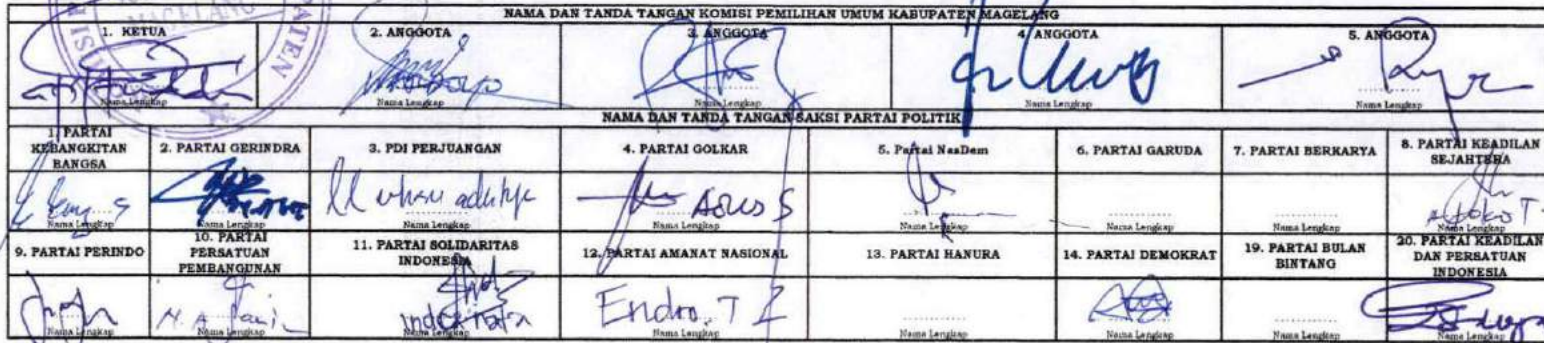 MAGELANG
NAMA DAN TANDA TANGAN KOMISI PEMILIHAN UMUM KABUPATEN MAGELANG
1. KETUA 2. ANGGOTA 3. ANGGOTA 4. ANGGOTA 5. ANGGOTA
Nama Lengkap Nama Lengkap Nama Lengkap Nama Lengkap Nama Lengkap
NAMA DAN TANDA TANGAN SAKSI PARTAI POLITIK
1. PARTAI KEBANGKITAN BANGSA 2. PARTAI GERINDRA 3. PDI PERJUANGAN 4. PARTAI GOLKAR 5. Partai NasDem 6. PARTAI GARUDA 7. PARTAI BERKARYA 8. PARTAI KEADILAN SEJAHTERA
AGUS S
Nama Lengkap Nama Lengkap Nama Lengkap Nama Lengkap Nama Lengkap Nama Lengkap Nama Lengkap Nama Lengkap
9. PARTAI PERINDO 10. PARTAI PERSATUAN PEMBANGUNAN 11. PARTAI SOLIDARITAS INDONESIA 12. PARTAI AMANAT NASIONAL 13. PARTAI HANURA 14. PARTAI DEMOKRAT 19. PARTAI BULAN BINTANG 20. PARTAI KEADILAN DAN PERSATUAN INDONESIA
Endro. T
Nama Lengkap Nama Lengkap Nama Lengkap Nama Lengkap Nama Lengkap Nama Lengkap Nama Lengkap Nama Lengkap